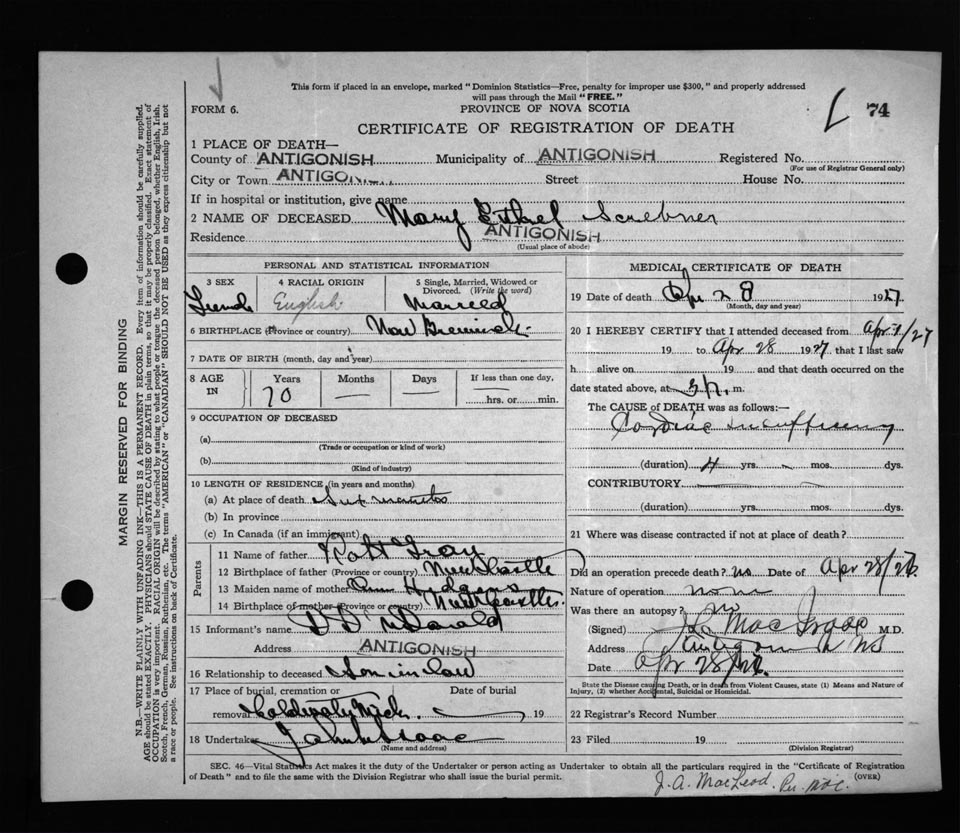 This form if placed in an envelope, marked "Dominion Statistics—Free, penalty for improper use $300," and properly addressed
will pass through the Mail "FREE."
FORM 6.
PROVINCE OF NOVA SCOTIA
74
CERTIFICATE OF REGISTRATION OF DEATH
1 PLACE OF DEATH—
County of ANTIGONISH Municipality of ANTIGONISH Registered No.
(For use of Registrar General only)
City or Town ANTIGONISH Street House No.
If in hospital or institution, give name
2 NAME OF DECEASED Mary Ethel Screbner
Residence ANTIGONISH
(Usual place of abode)
PERSONAL AND STATISTICAL INFORMATION
3 SEX
4 RACIAL ORIGIN
English
5 Single, Married, Widowed or
Divorced. (Write the word)
Married
6 BIRTHPLACE (Province or country) New
7 DATE OF BIRTH (month, day and year)
8 AGE IN
Years
70
Months
—
Days
—
If less than one day,
hrs. or min.
9 OCCUPATION OF DECEASED
(a)
(Trade or occupation or kind of work)
(b)
(Kind of industry)
10 LENGTH OF RESIDENCE (in years and months)
(a) At place of death
(b) In province
(c) In Canada (if an immigrant)
Parents
11 Name of father Robt Gray
12 Birthplace of father (Province or country) Newcastle
13 Maiden name of mother Ann H
14 Birthplace of mother (Province or country) Newcastle
15 Informant's name D D McDonald
Address ANTIGONISH
16 Relationship to deceased Son in law
17 Place of burial, cremation or
Date of burial
removal 19
18 Undertaker
(Name and address)
MEDICAL CERTIFICATE OF DEATH
19 Date of death Apr 28 1927
(Month, day and year)
20 I HEREBY CERTIFY that I attended deceased from Apr 1/27
19 to Apr 28 1927 that I last saw
h alive on 19 and that death occurred on the
date stated above, at m.
The CAUSE of DEATH was as follows:—
Cardiac insufficiency
(duration) 4 yrs. mos. dys.
CONTRIBUTORY
(duration) yrs. mos. dys.
21 Where was disease contracted if not at place of death?
Did an operation precede death? no Date of Apr 28/26
Nature of operation none
Was there an autopsy? no
(Signed) M.D.
Address Antigonish NS
Date Apr 28/26
State the Disease causing Death, or in death from Violent Causes, state (1) Means and Nature of
Injury, (2) whether Accidental, Suicidal or Homicidal.
22 Registrar's Record Number
23 Filed 19
(Division Registrar)
SEC. 46—Vital Statistics Act makes it the duty of the Undertaker or person acting as Undertaker to obtain all the particulars required in the "Certificate of Registration
of Death" and to file the same with the Division Registrar who shall issue the burial permit.
(OVER)
J. A. MacLeod.
MARGIN RESERVED FOR BINDING
N.B.—WRITE PLAINLY WITH UNFADING INK—THIS IS A PERMANENT RECORD. Every item of information should be carefully supplied.
AGE should be stated EXACTLY. PHYSICIANS should STATE CAUSE OF DEATH in plain terms, so that it may be properly classified. Exact statement of
OCCUPATION is very important. RACIAL ORIGIN will be described by stating to what people or tongue the deceased person belonged, whether English, Irish,
Scotch, French, German, Russian, Ruthenian, etc. The terms "AMERICAN" or "CANADIAN" SHOULD NOT BE USED as they express citizenship but not
a race or people. See instructions on back of Certificate.